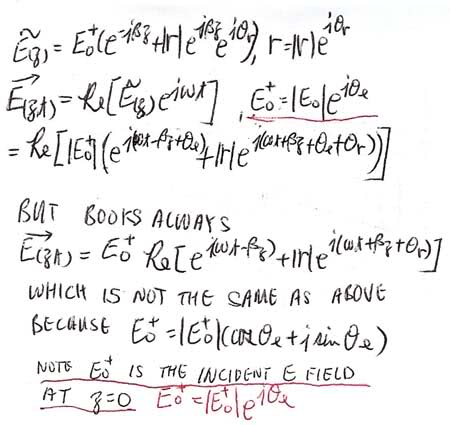 Ẽ(z) = E₀⁺(e^-jβz + |r|e^jβz e^jθr), r = |r|e^jθr
E⃗(z,t) = Re[Ẽ(z) e^jωt], E₀⁺ = |E₀|e^jθe
= Re[|E₀⁺|(e^j(ωt-βz+θe) + |r|e^j(ωt+βz+θe+θr))]
BUT BOOKS ALWAYS
E⃗(z,t) = E₀⁺ Re[e^j(ωt-βz) + |r|e^j(ωt+βz+θr)]
WHICH IS NOT THE SAME AS ABOVE
BECAUSE E₀⁺ = |E₀⁺|(cosθe + j sinθe)
NOTE E₀⁺ IS THE INCIDENT E FIELD
AT z=0 E₀⁺ = |E₀⁺|e^jθe